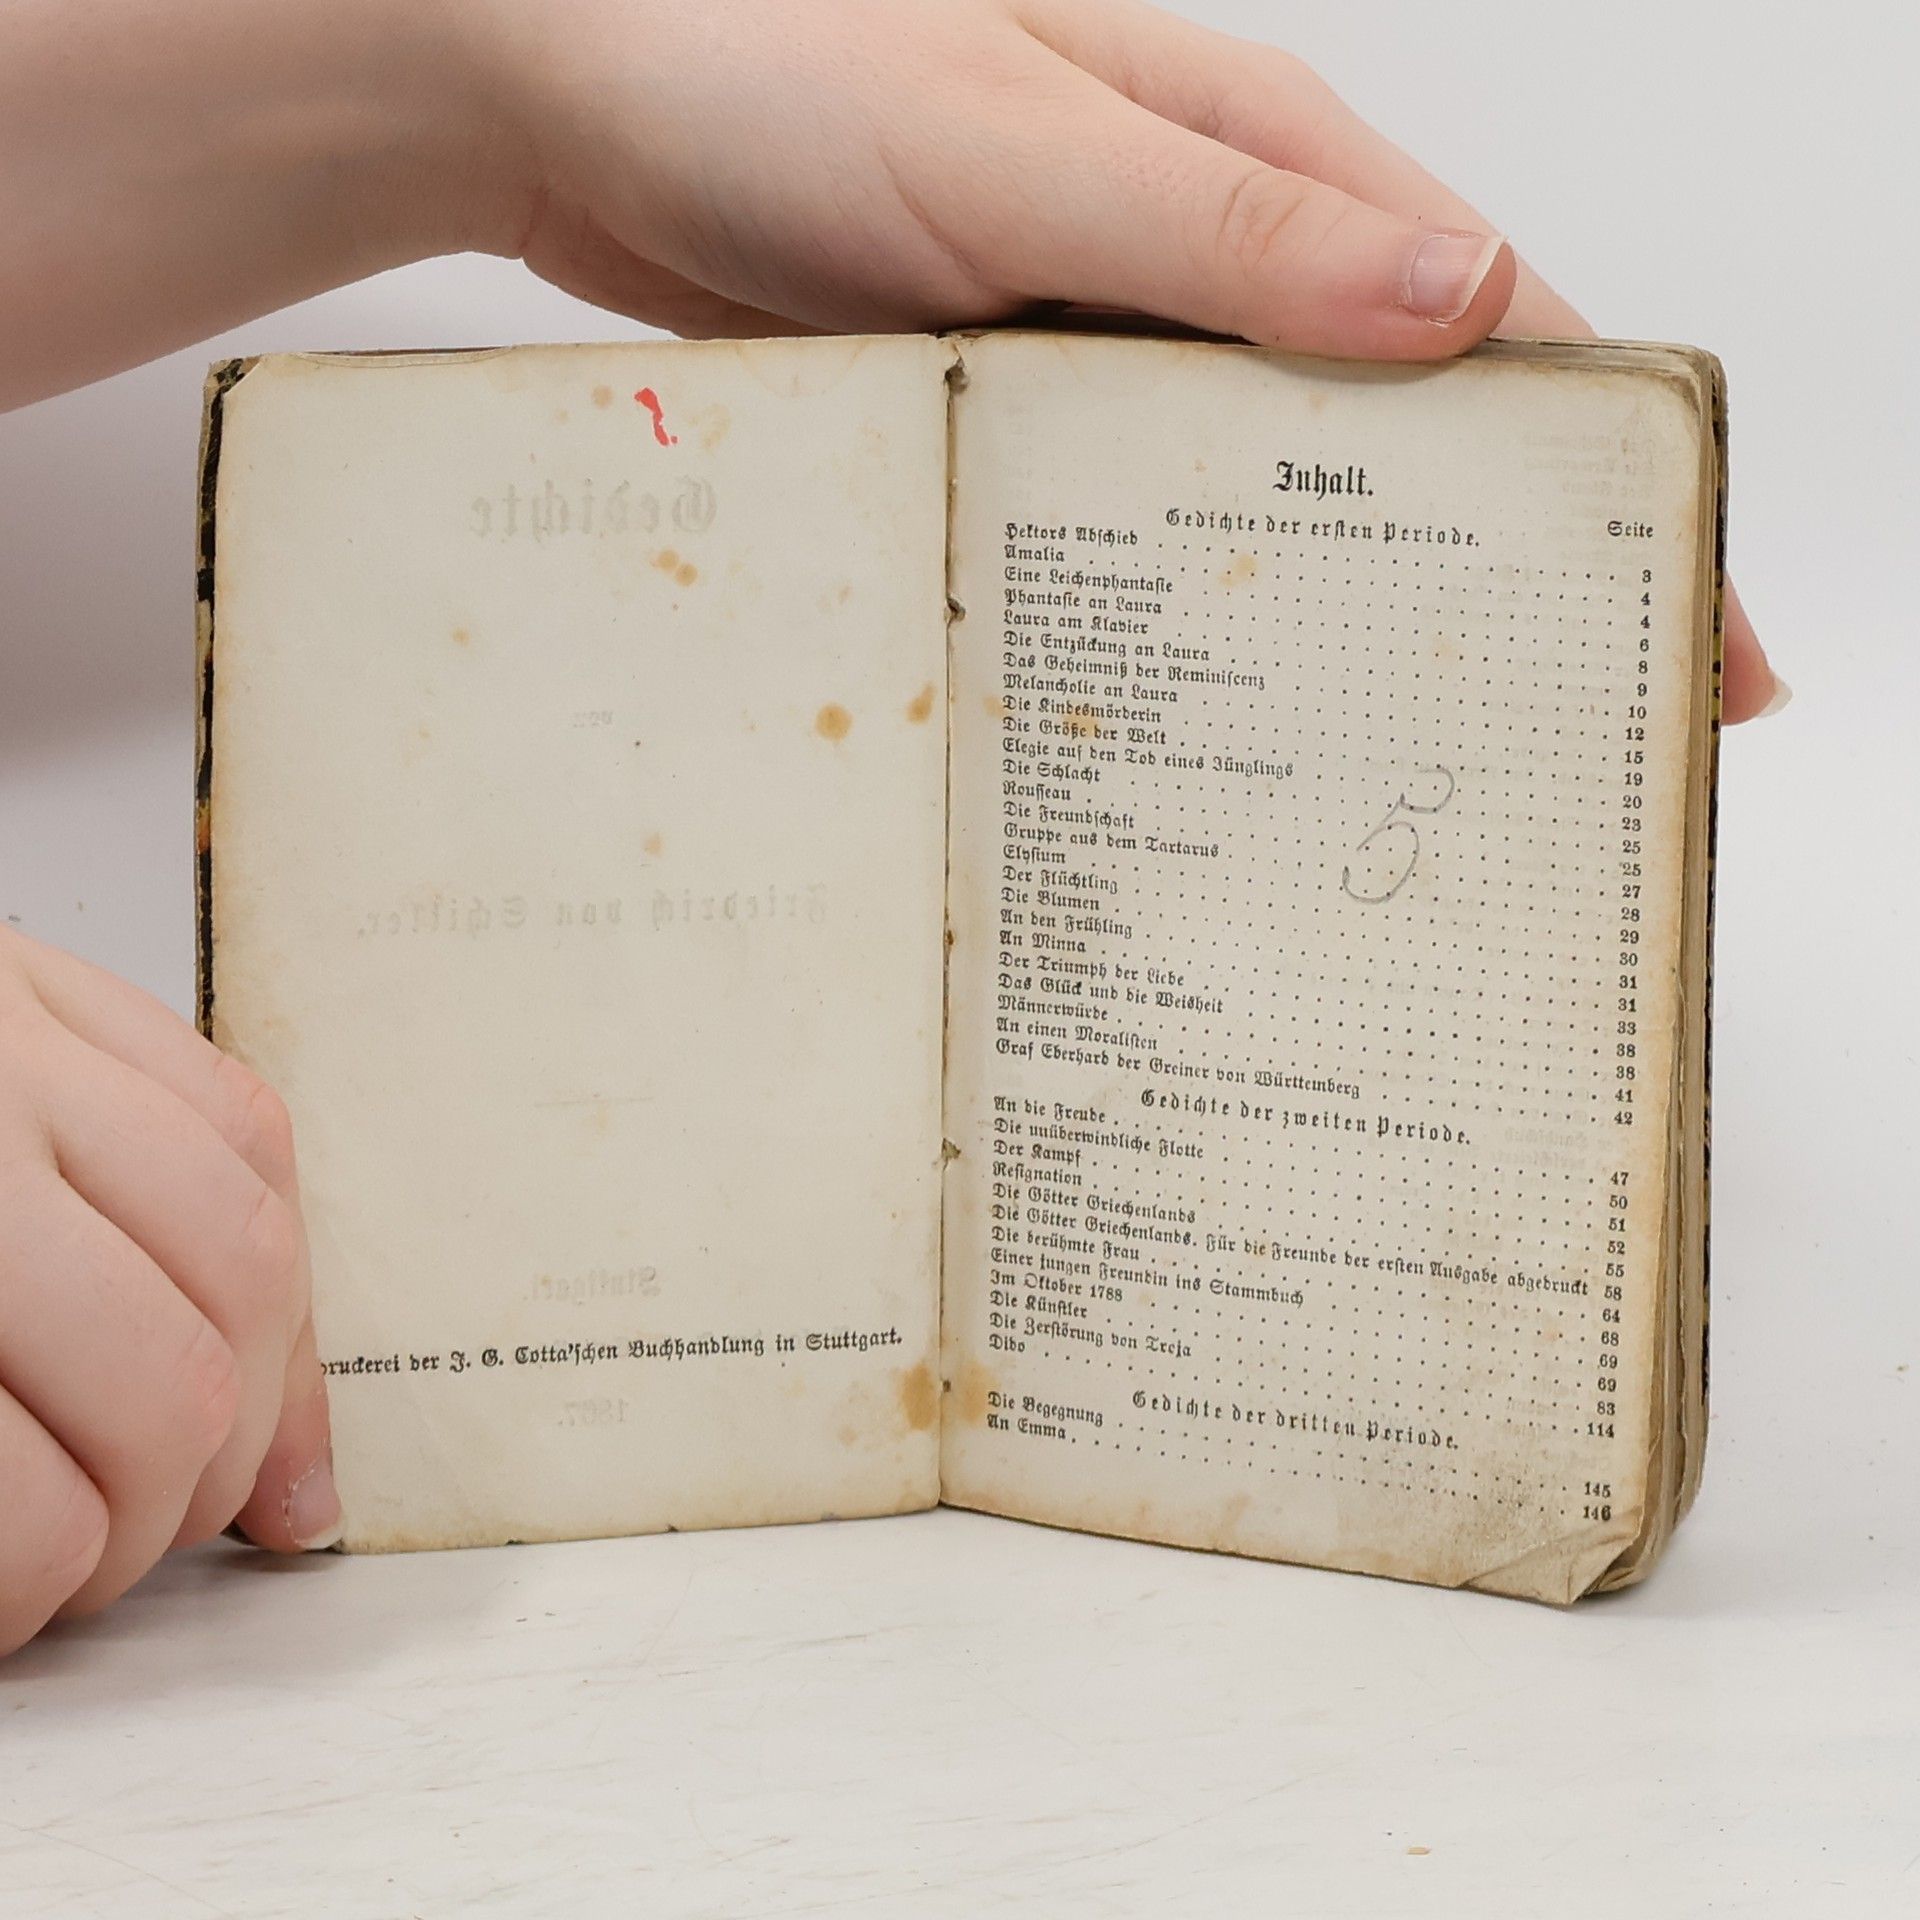 Gedichte
von
Friedrich von Schiller.
Stuttgart.
druckerei der J. G. Cotta'schen Buchhandlung in Stuttgart.
1867.
Inhalt.
Gedichte der ersten Periode. Seite
Hektors Abschied 3
Amalia 4
Eine Leichenphantasie 4
Phantasie an Laura 6
Laura am Klavier 8
Die Entzückung an Laura 9
Das Geheimniß der Reminiscenz 10
Melancholie an Laura 12
Die Kindesmörderin 15
Die Größe der Welt 19
Elegie auf den Tod eines Jünglings 20
Die Schlacht 23
Rousseau 25
Die Freundschaft 25
Gruppe aus dem Tartarus 27
Elysium 28
Der Flüchtling 29
Die Blumen 30
An den Frühling 31
An Minna 31
Der Triumph der Liebe 33
Das Glück und die Weisheit 38
Männerwürde 38
An einen Moralisten 41
Graf Eberhard der Greiner von Württemberg 42
Gedichte der zweiten Periode.
An die Freude 47
Die unüberwindliche Flotte 50
Der Kampf 51
Resignation 52
Die Götter Griechenlands 55
Die Götter Griechenlands. Für die Freunde der ersten Ausgabe abgedruckt 58
Die berühmte Frau 64
Einer jungen Freundin ins Stammbuch 68
Im Oktober 1788 69
Die Künstler 69
Die Zerstörung von Troja 83
Dido 114
Gedichte der dritten Periode.
Die Begegnung 145
An Emma 146